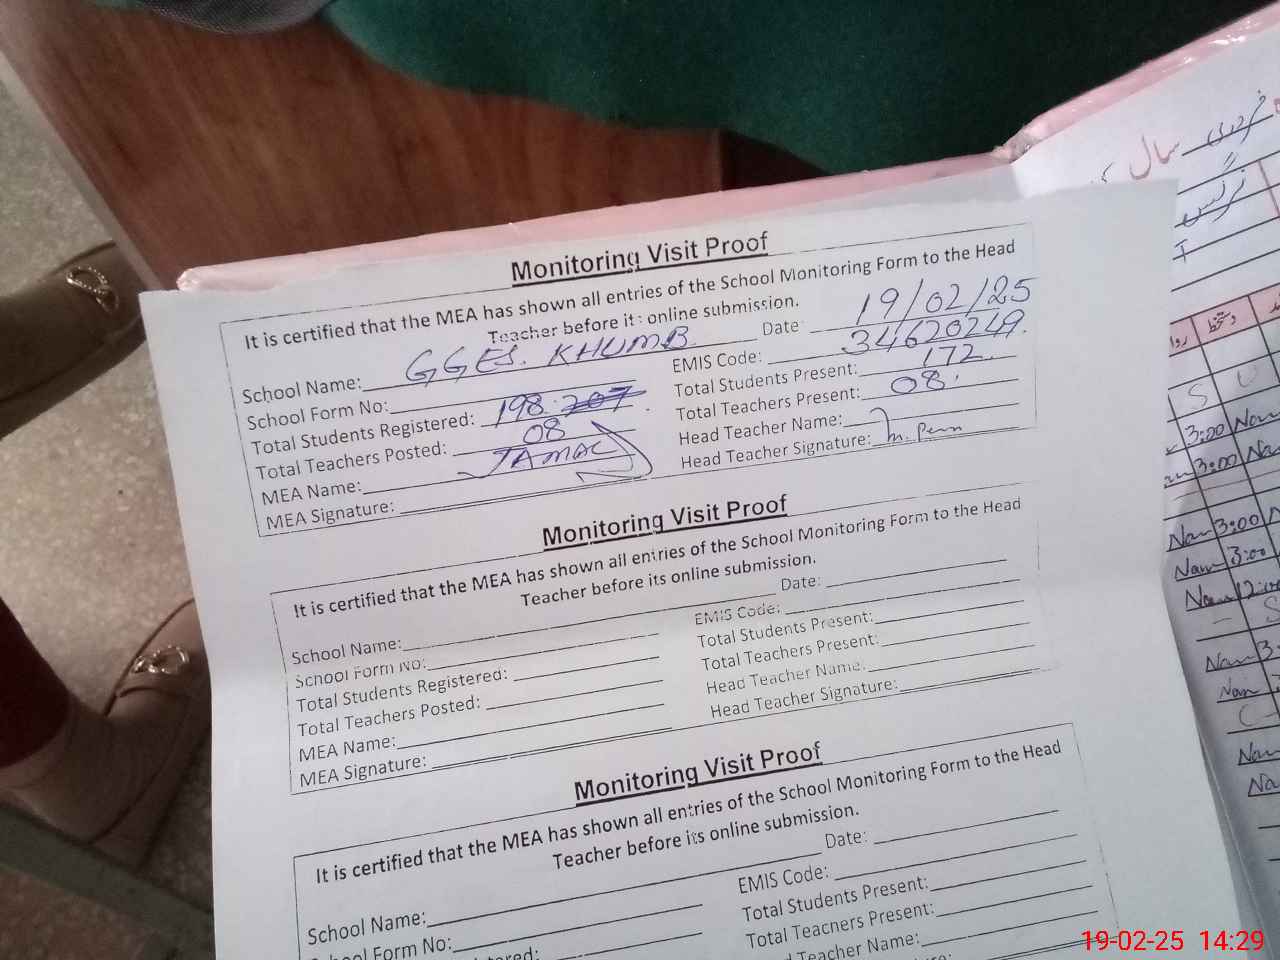 Monitoring Visit Proof
It is certified that the MEA has shown all entries of the School Monitoring Form to the Head
Teacher before it: online submission.
School Name: GGES. KHUMB Date: 19/02/25
School Form No: EMIS Code: 34620249.
Total Students Registered: 198. 207 Total Students Present: 172.
Total Teachers Posted: 08 Total Teachers Present: 08.
MEA Name: JAMAL Head Teacher Name:
MEA Signature: Head Teacher Signature:
Monitoring Visit Proof
It is certified that the MEA has shown all entries of the School Monitoring Form to the Head
Teacher before its online submission.
School Name: Date:
School Form No: EMIS Code:
Total Students Registered: Total Students Present:
Total Teachers Posted: Total Teachers Present:
MEA Name: Head Teacher Name:
MEA Signature: Head Teacher Signature:
Monitoring Visit Proof
It is certified that the MEA has shown all entries of the School Monitoring Form to the Head
Teacher before its online submission.
School Name: Date:
ool Form No: EMIS Code:
tered: Total Students Present:
Total Teachers Present:
Teacher Name:
سال
3:00
3:00
3:00
3:00
19-02-25 14:29